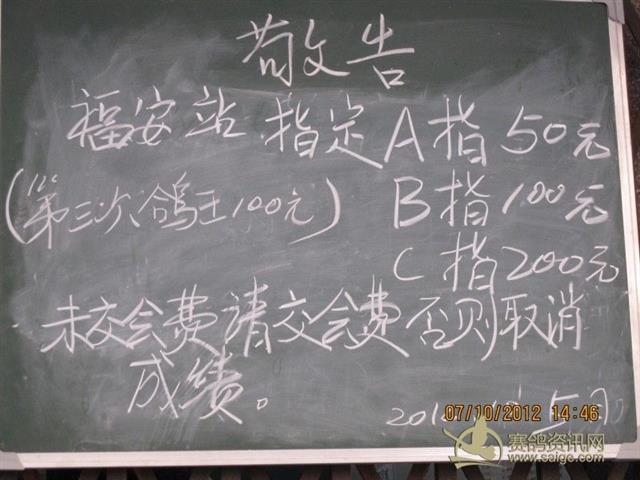 敬告
福安站 指定 A指50元
(第三次鸽王100元) B指100元
C指200元
未交会费请交会费否则取消
成绩。
201
07/10/2012 14:46
赛鸽资讯网
www.saige.com